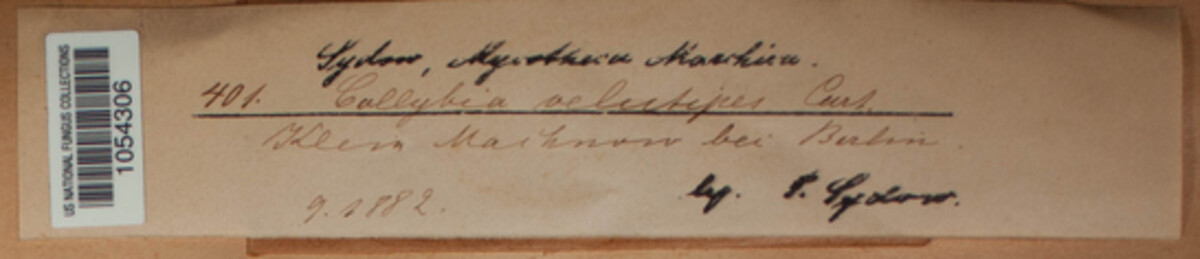 US NATIONAL FUNGUS COLLECTIONS
1054306
Sydow, Mycotheca Marchica.
401. Collybia velutipes Curt.
Klein Machnow bei Berlin.
9. 1882.
leg. P. Sydow.